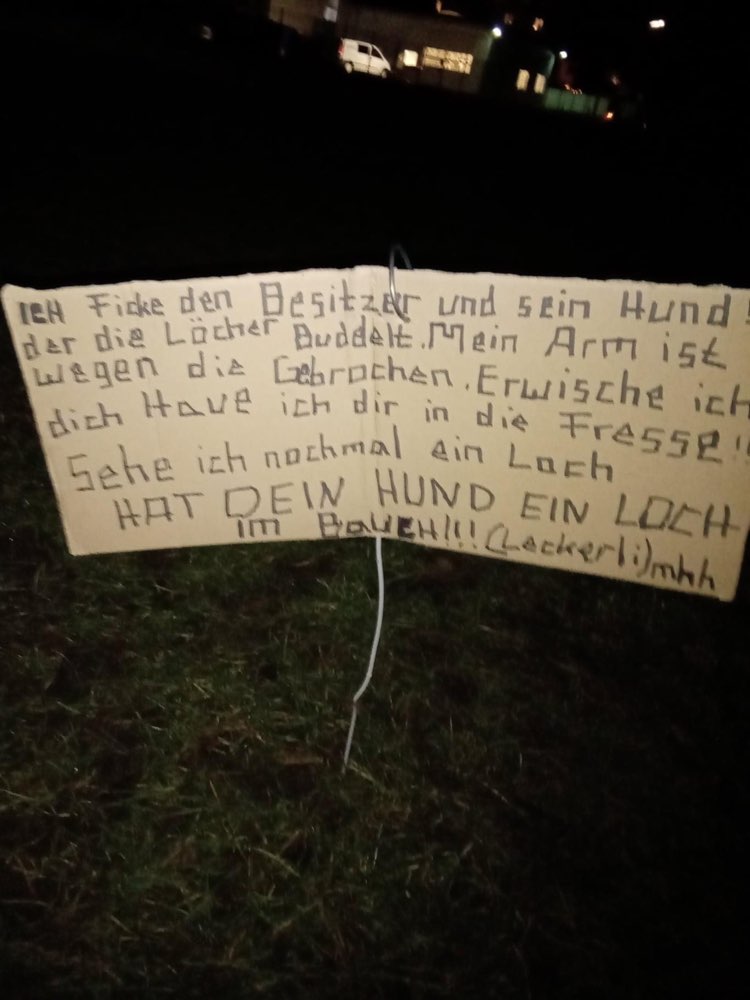 ICH Ficke den Besitzer und sein Hund!
der die Löcher Buddelt. Mein Arm ist
wegen die Gebrochen. Erwische ich
dich Haue ich dir in die Fresse!!
Sehe ich nochmal ein Loch
HAT DEIN HUND EIN LOCH
im BaUCH!!! (Leckerli) mhh